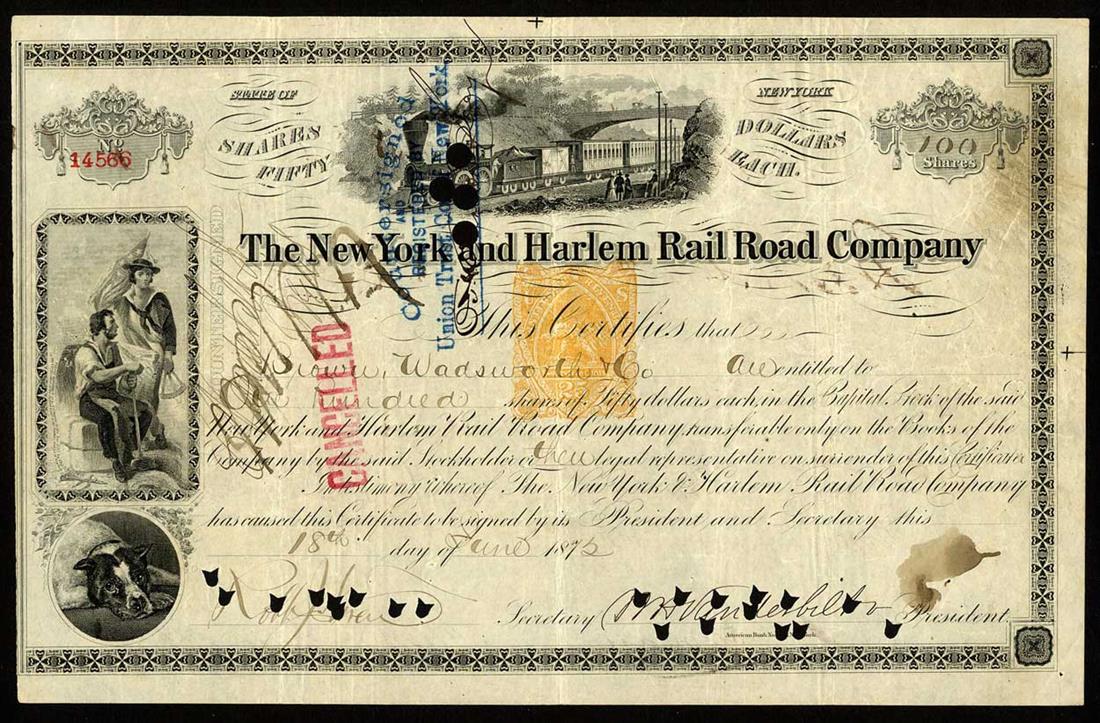 STATE OF NEW YORK
SHARES FIFTY DOLLARS EACH.
No
14566
100
Shares
Countersigned
AND
REGISTERED
Union Trust Co. New York
COUNTERSIGNED
The New York and Harlem Rail Road Company
CANCELLED
This Certifies that
Brown, Wadsworth & Co Are entitled to
One hundred shares of Fifty dollars each in the Capital Stock of the said
New York and Harlem Rail Road Company, transferable only on the Books of the
Company by the said Stockholder or their legal representative on surrender of this Certificate
In testimony whereof The New York & Harlem Rail Road Company
has caused this Certificate to be signed by its President and Secretary this
18th day of June 1872
Secretary Wm H Vanderbilt President.
American Bank Note